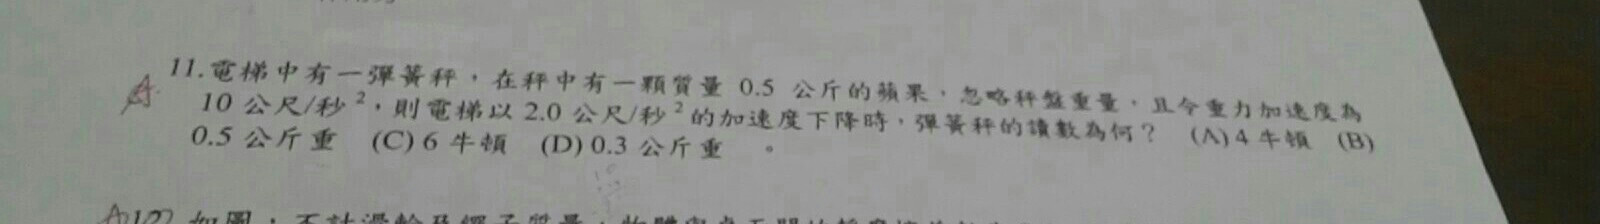 11.電梯中有一彈簧秤，在秤中有一顆質量 0.5 公斤的蘋果，忽略秤盤重量，且令重力加速度為
A
10 公尺/秒²，則電梯以 2.0 公尺/秒²的加速度下降時，彈簧秤的讀數為何？ (A) 4 牛頓 (B)
0.5 公斤重 (C) 6 牛頓 (D) 0.3 公斤重 。
12 如圖，不計滑輪及繩子質量，物體與桌面間的